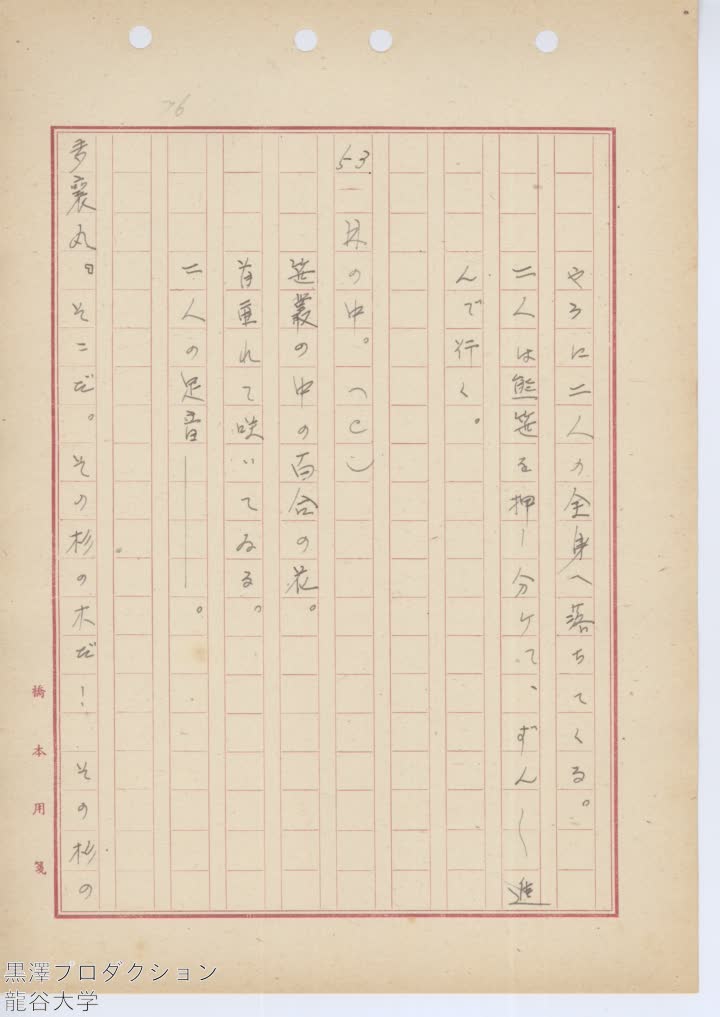 76
やうに二人の全身へ落ちてくる。
二人は熊笹を押し分けて、ずん〳〵進
んで行く。
53 林の中。(C)
笹叢の中の百合の花。
首垂れて咲いてゐる。
二人の足音――。
多襄丸。そこだ。その杉の木だ！　その杉の
橋本用箋
黒澤プロダクション
龍谷大学